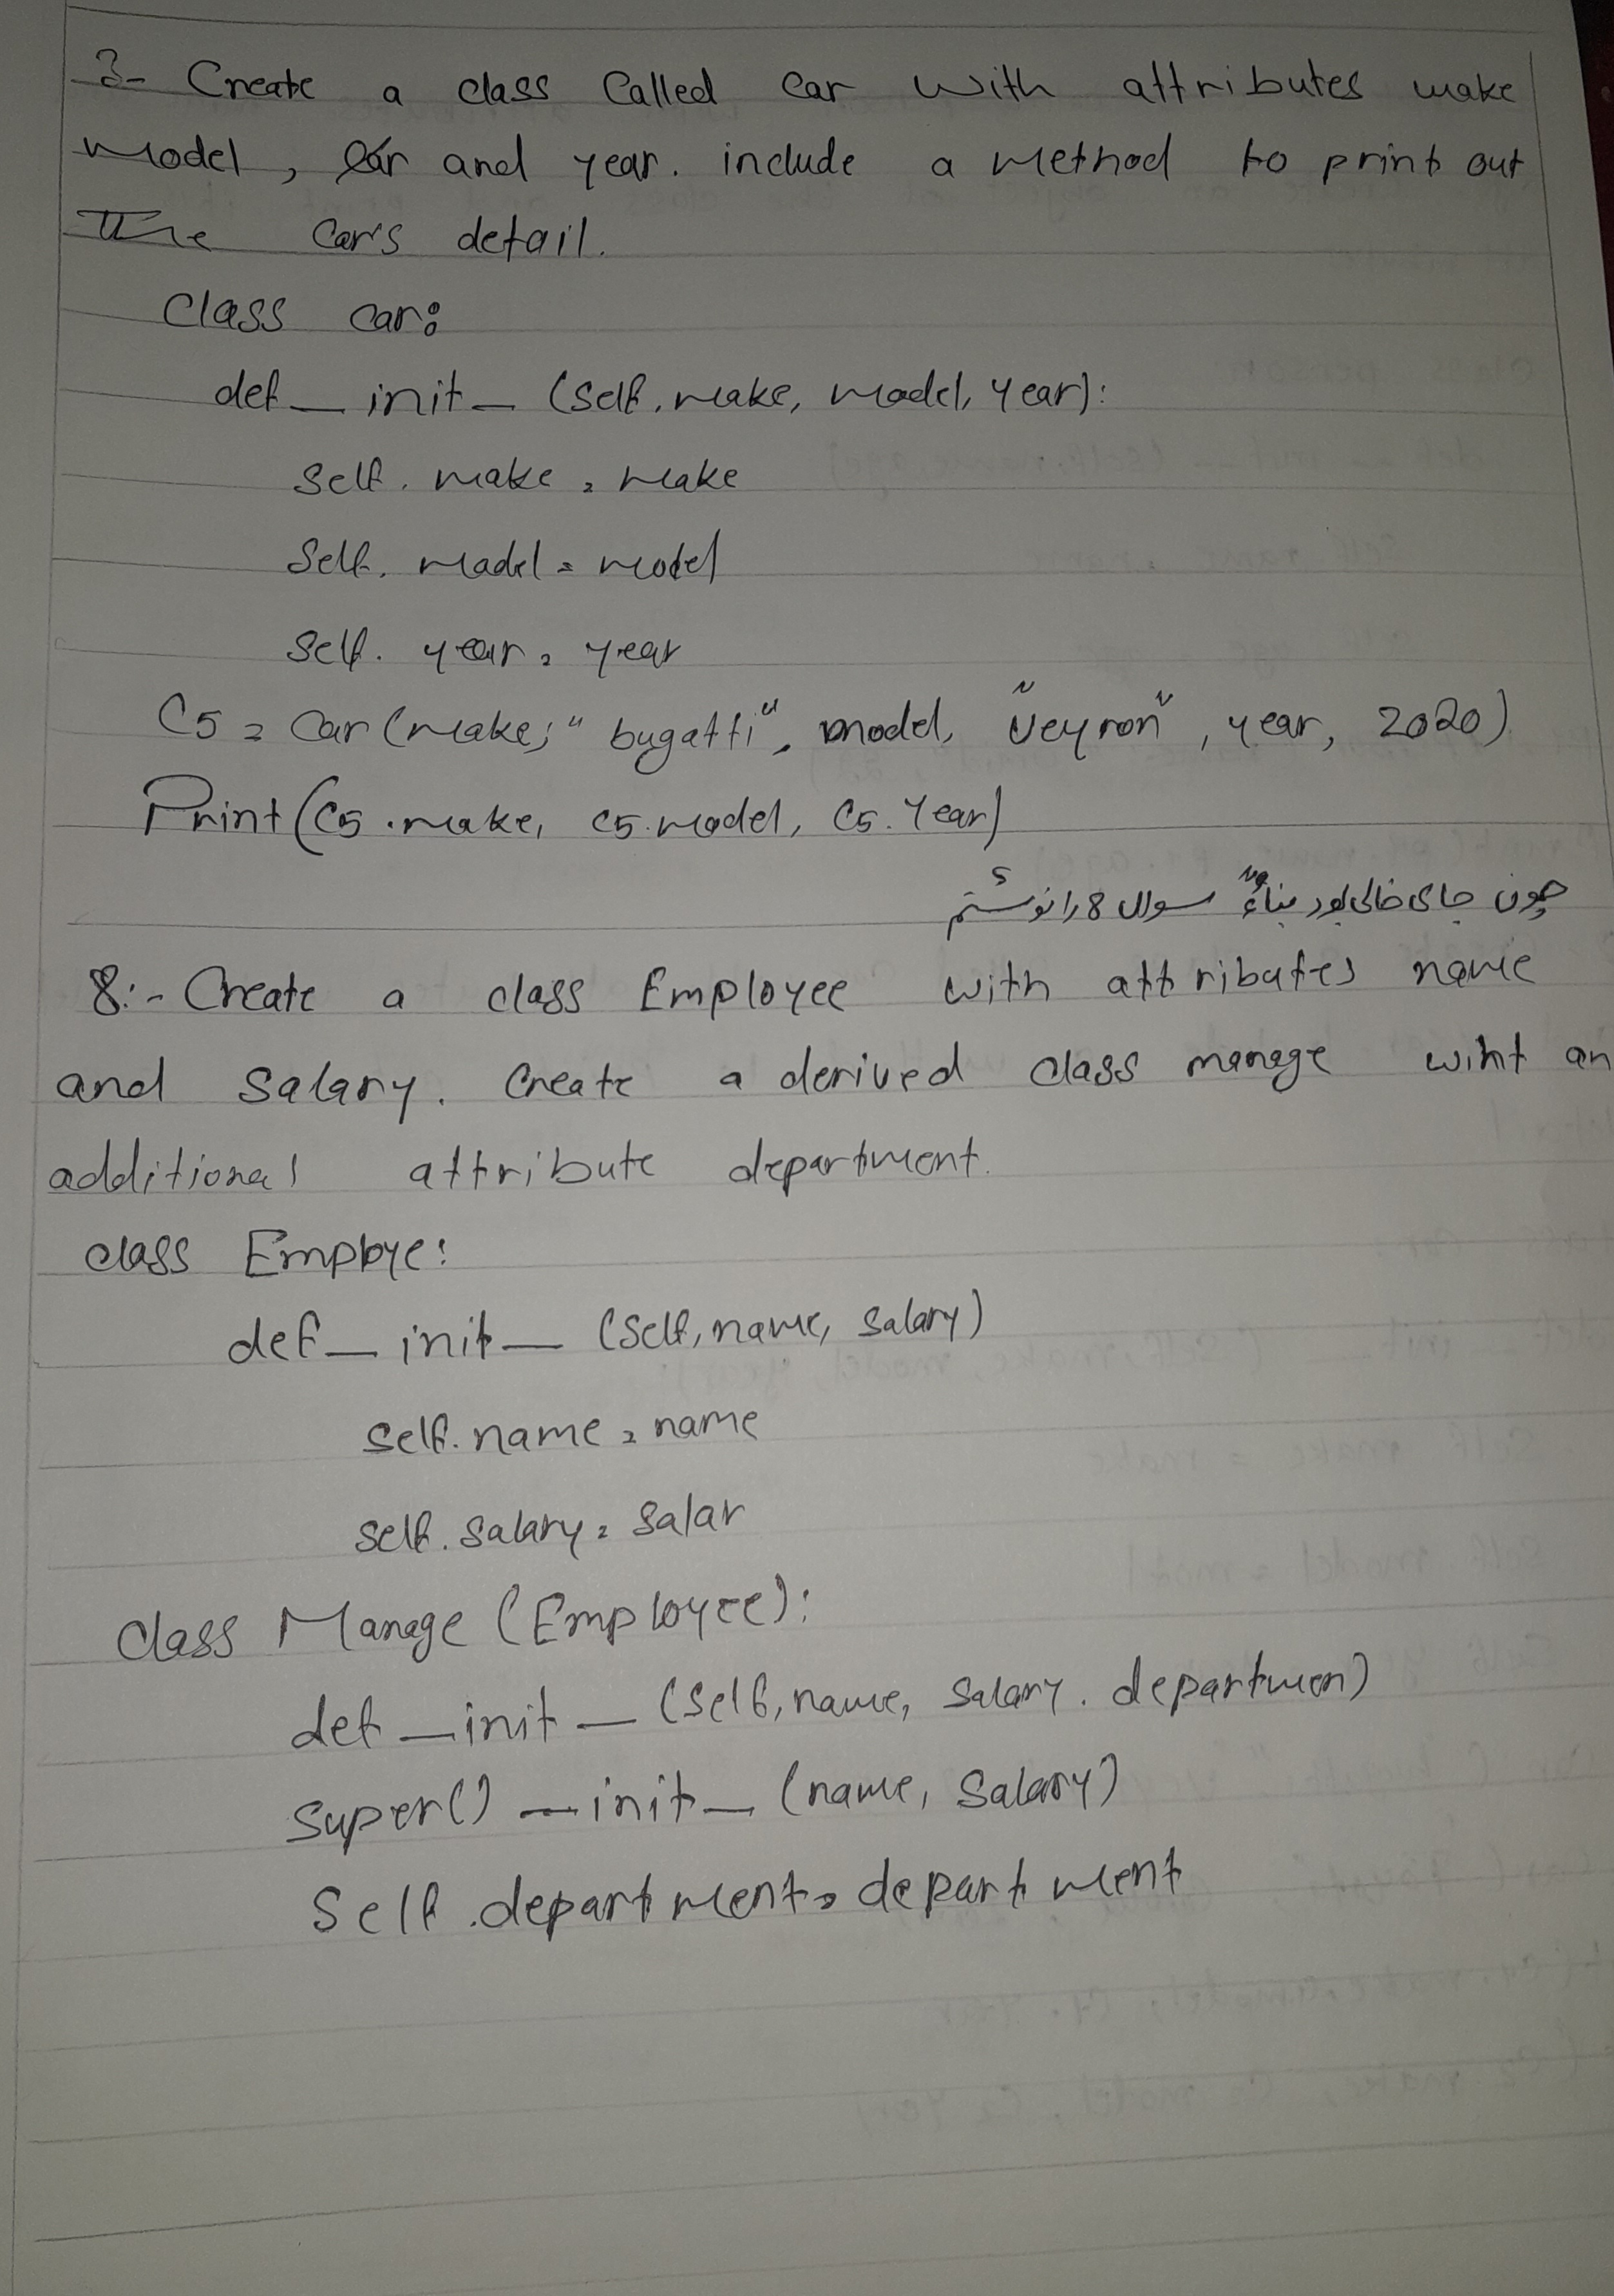 3- Create a class Called Car with attributes make
model, and year. include a method to print out
The Car's detail.
Class car:
def _ init _ (self. make, model, year):
Self. make = make
Self. model = model
Self. year = year
C5 = Car (make, "bugatti", model, "Veyron", year, 2020)
Print (C5 .make, C5.model, C5.Year)
چون جای خالی بود بناءً سوال 8 را نوشتم
8:- Create a class Employee with attributes name
and Salary. Create a derived class manage wiht an
additional attribute department.
class Employe:
def _ init _ (self, name, salary)
self. name = name
self. salary = salar
Class Manage (Employee):
def _ init _ (self, name, salary. departmen)
super() _ init _ (name, Salary)
Self .department = department